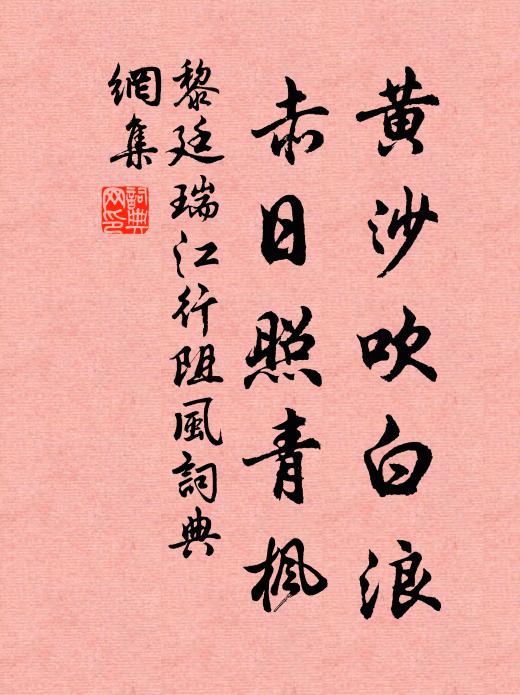 黄沙吹白浪
赤日照青楓
黎廷瑞江行阻風詞典
網集
詞典
网印